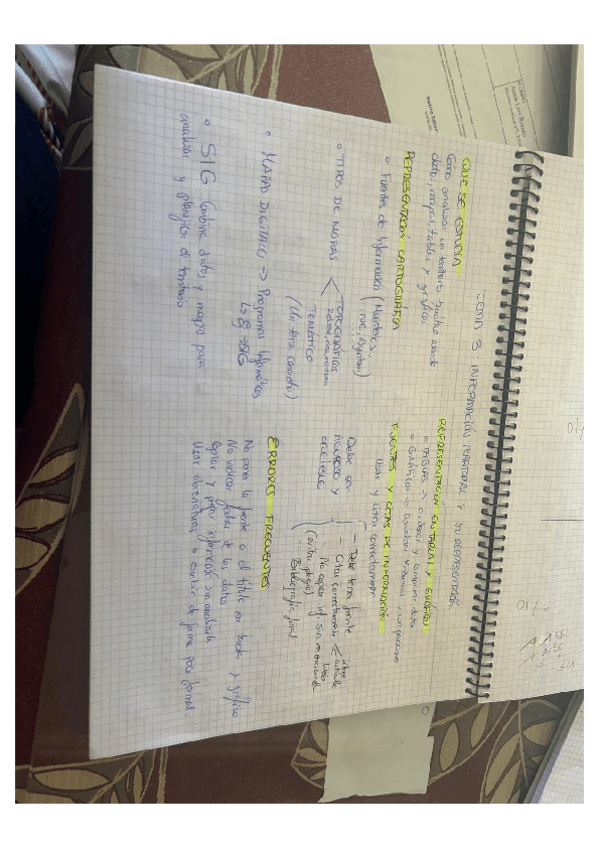 TEMA 3: INFORMACIÓN TERRITORIAL Y SU REPRESENTACIÓN
QUE SE ESTUDIA
Cómo analizar un territorio
datos, mapas, tablas y gráficos
REPRESENTACIÓN CARTOGRÁFICA
Fuentes de Información (Ministerios,
INE, Ayuntam)
TIPOS DE MAPAS <
TOPOGRÁFICOS
Relieve,
TEMÁTICO
(Un tema concreto)
MAPAS DIGITALES => Programas Informáticos
↳ Ej => SIG
SIG Combina datos y mapas para
analizar y planificar el territorio
REPRESENTACIÓN EN TABLAS Y GRÁFICOS
TABLAS -> ordenar y comparar datos
Gráficos -> Visualizar
FUENTES Y CITAS DE INFORMACIÓN
Usar y citar correctamente
Debe ser
riguroso y
- Debe tener fuente
- Citar correctamente < libro
artículo
web
- No copiar inf sin mencionarla
(evitar plagio)
Bibliografía final
ERRORES FRECUENTES
No poner la fuente o el título en tabla y gráfico
No indicar fecha de los datos
Copiar y pegar información sin analizarla
Usar abreviaturas o escribir de forma poco formal.